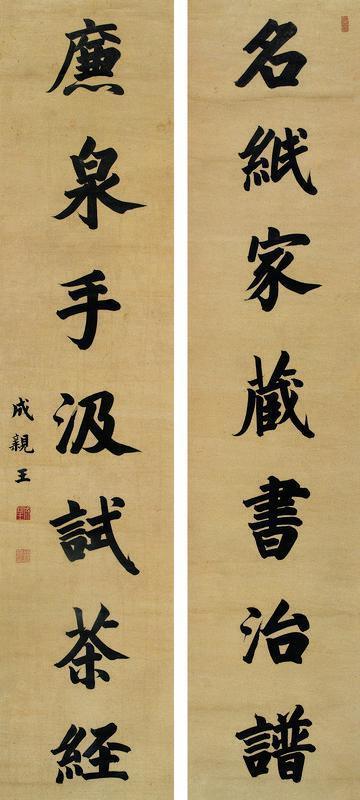 名紙家藏書治譜
廉泉手汲試茶經
成親王